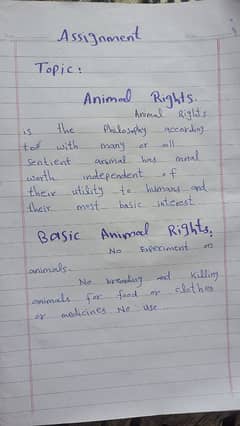 Assignment
Topic:
Animal Rights.
Animal Rights
is the Philosophy according
to with many or all
sentient animal has moral
worth independent of
their utility to humans and
their most basic interest
Basic Animal Rights.
No Experiment on
animals.
No breading and killing
animals for food or clothes
or medicines No use